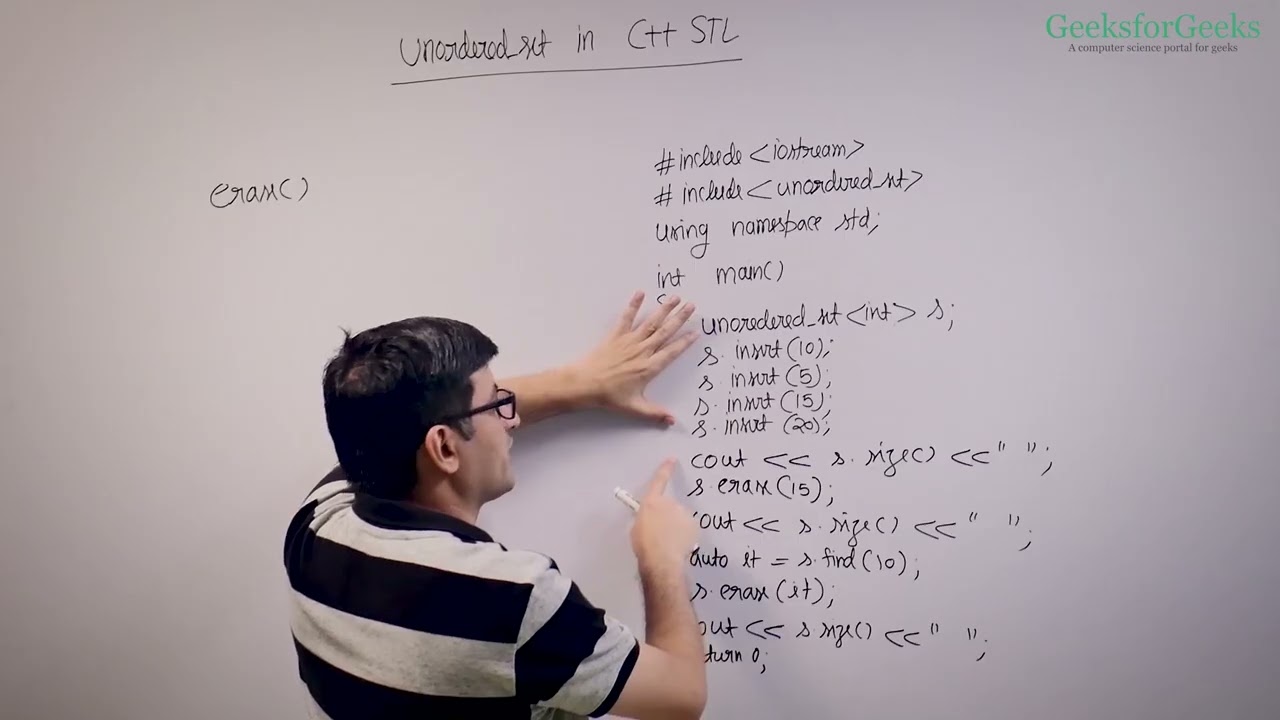 unordered_set in C++ STL
GeeksforGeeks
A computer science portal for geeks
erase()
#include <iostream>
#include <unordered_set>
using namespace std;
int main()
{
unoredered_set <int> s;
s.insert(10);
s.insert(5);
s.insert(15);
s.insert(20);
cout << s.size() <<" ";
s.erase(15);
cout << s.size() <<" ";
auto it = s.find(10);
s.erase(it);
out << s.size() <<" ";
turn 0;